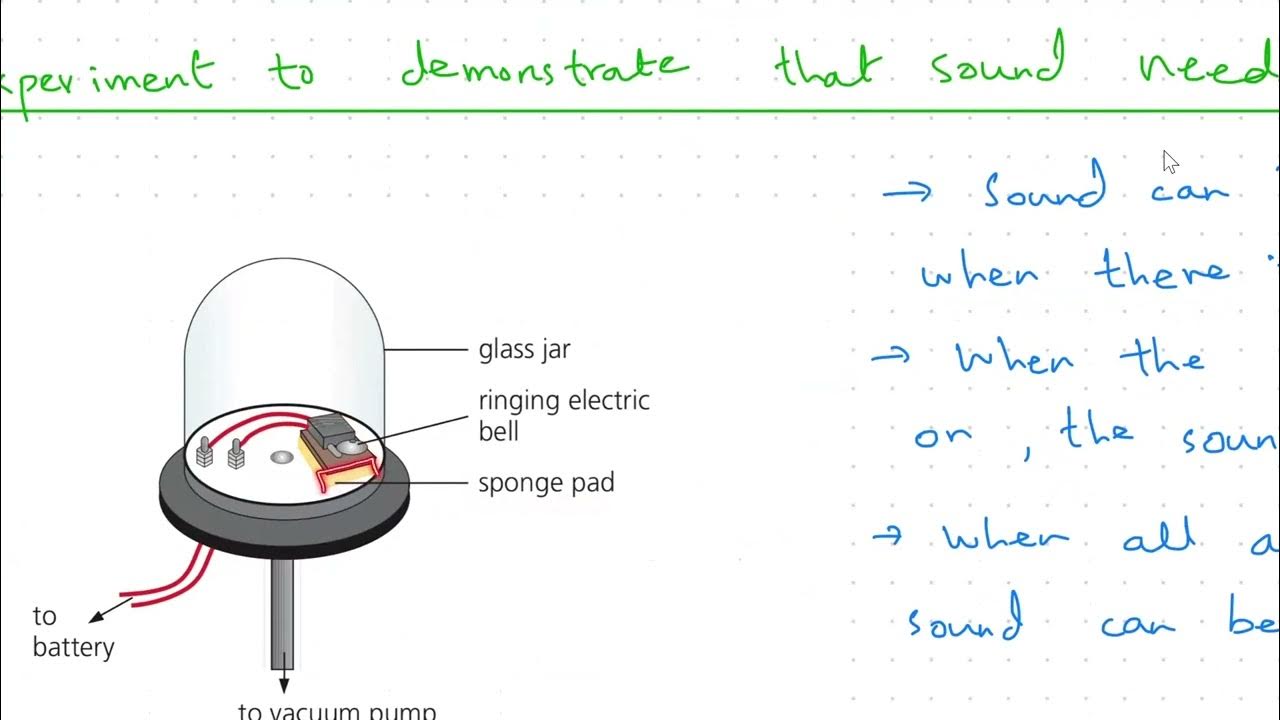 xperiment to demonstrate that sound need
→ Sound can
when there
→ When the
on, the soun
→ When all a
sound can be
glass jar
ringing electric
bell
sponge pad
to
battery
to vacuum pump